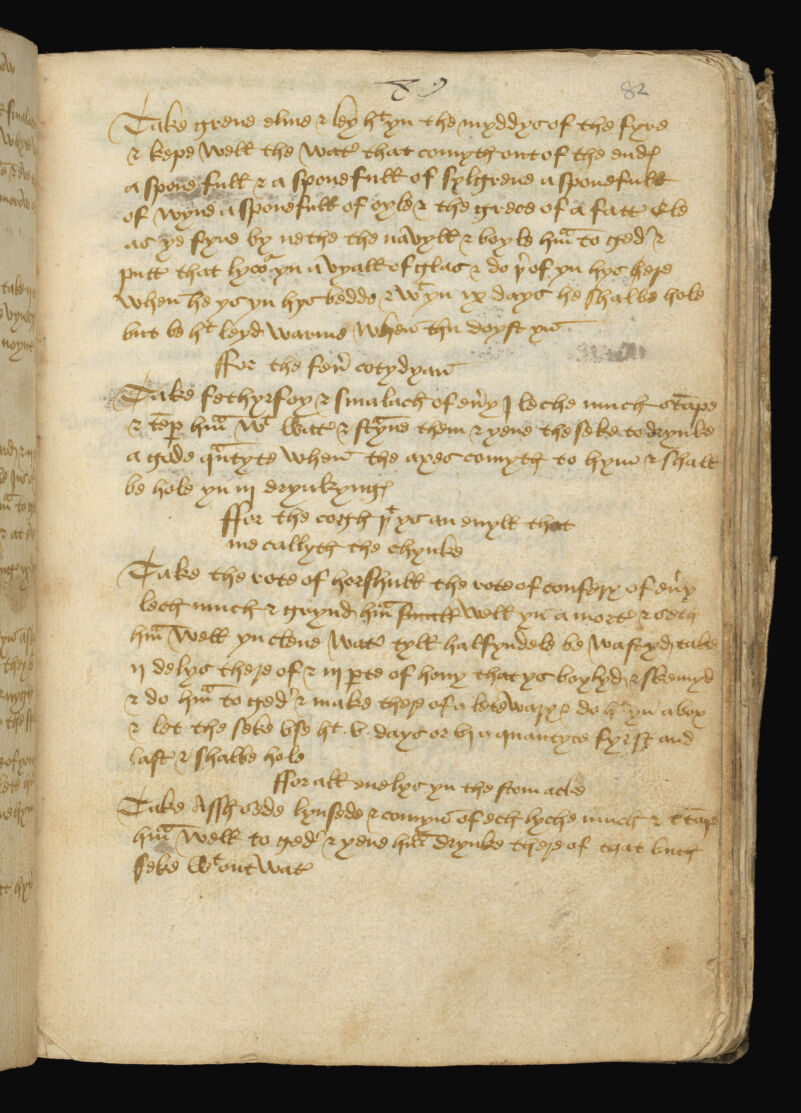 89 82
Take grene elme & ley ht yn the myddys of the fyre
& kepe well the wat that comyth out of the end
a spone full & a sponefull of sylgrene a sponefull
of wyne a sponefull of oyle & the grece of a fatt ele
as ye fyre by nethe the navyll & boyle hm to ged &
putt that lyco yn a vyall of glas & do þ of yn hys here
when he ys yn hys bedde & wt yn ix days he shalbe hole
but be ht leyd warme when thu doyst yn
ffor the fev cotydyan
Take fethyrfoy & smalach of evy J leche much stape
& tep hm wt watt & strayne them & yeve the seke to drynke
a gode qntyte when the axes comyth to hym & shall
be hole yn iij drynkyng
ffor the cogh þt ys an evyll that
me callyth the chynke
Take the rote of horshull the rote of confery of evy
lech much & grynd hm small well yn a morte & seth
hm well yn clene wat tyll halfyndele be wastyd take
ij delys there of & iij pte of hony that ys boylyd & skemyd
& do hm to ged & make there of a letewary & do ht yn a box
& let the seke vse ht .v. days or vj a quantyte fyrst and
last & shalbe hole
ffor all evelys yn the stomacke
Take Assh sede lynsede & comyn of ech lyche much & stape
hm well to ged & yeve hm drynke there of that
seke wt out wat